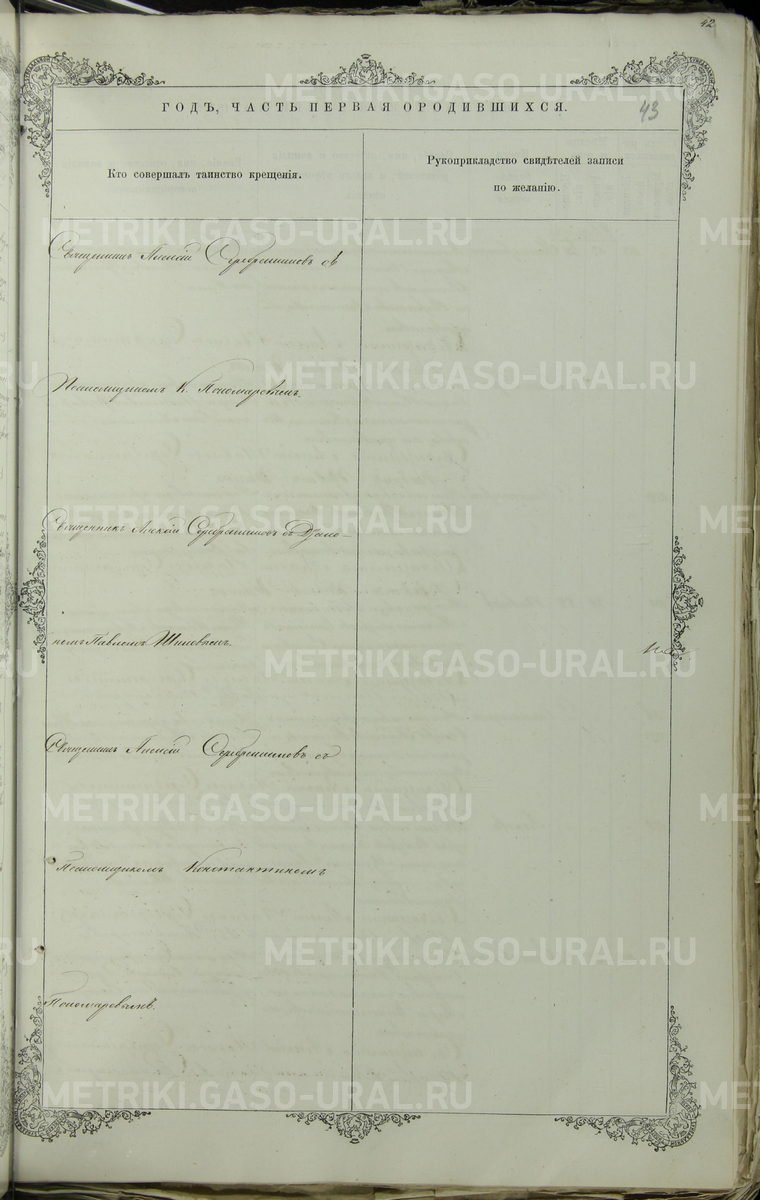 42
43
ГОДЪ, ЧАСТЬ ПЕРВАЯ О РОДИВШИХСЯ.
Кто совершалъ таинство крещенія.
Рукоприкладство свидѣтелей записи
по желанію.
Священникъ Алексій Серебренниковъ съ
Псаломщикомъ К. Пономаревымъ
Священникъ Алексій Серебренниковъ съ Діако-
номъ Павломъ Шиловымъ.
Священникъ Алексій Серебренниковъ съ
Псаломщикомъ Константиномъ
Пономаревымъ.
METRIKI.GASO-URAL.RU